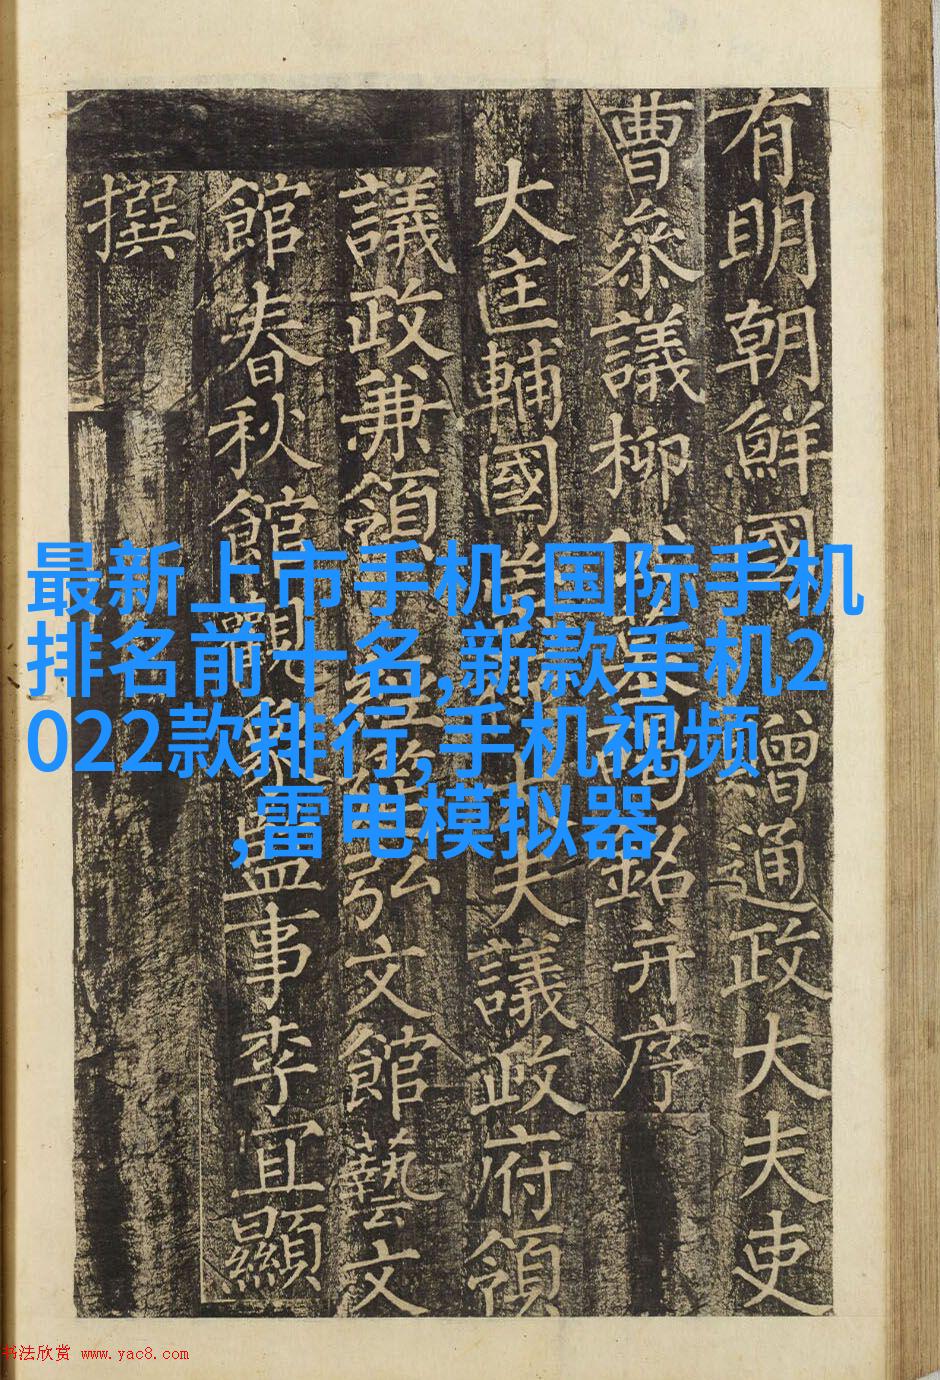 有明朝鮮國贈通政大夫吏
曹叅議柳公墓碣銘并序
大匡輔國崇祿大夫議政府領
議政兼領經筵弘文館藝文
館春秋館觀象監事李宜顯
撰
最新上市手机,国际手机
排名前十名,新款手机2
022款排行,手机视频
,雷电模拟器
书法欣赏 www.yac8.com